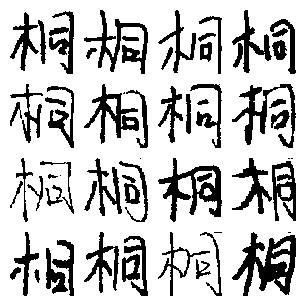 桐桐桐桐
桐桐桐桐
桐桐桐桐
桐桐桐桐